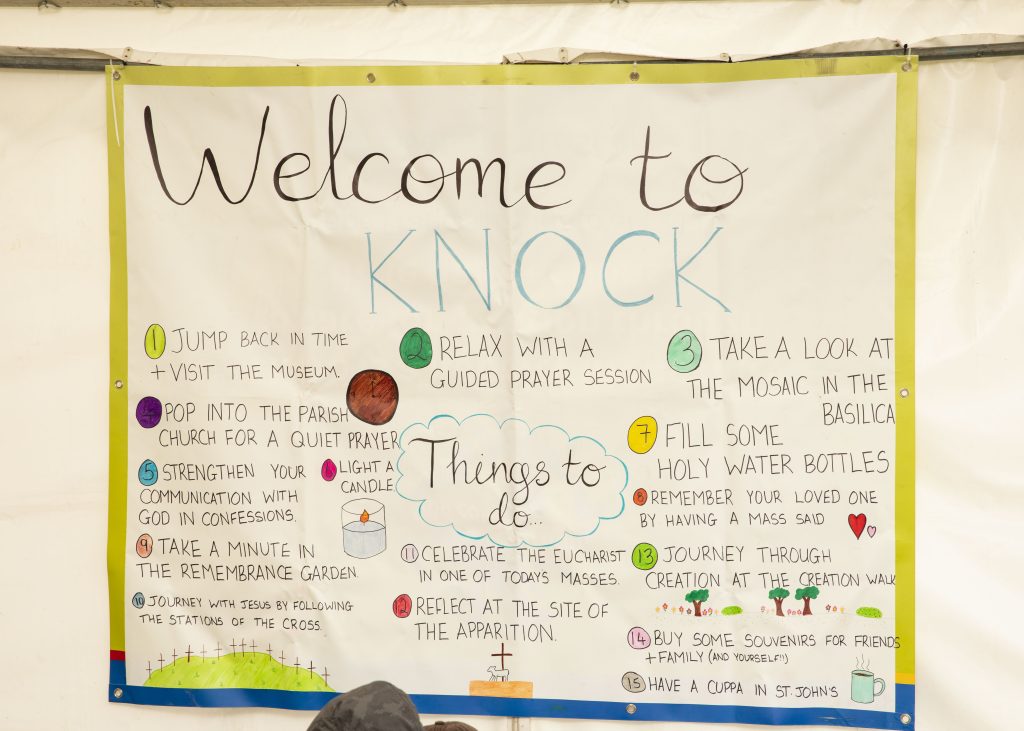 Welcome to
KNOCK
1 JUMP BACK IN TIME
+ VISIT THE MUSEUM.
2 RELAX WITH A
GUIDED PRAYER SESSION
3 TAKE A LOOK AT
THE MOSAIC IN THE
BASILICA
4 POP INTO THE PARISH
CHURCH FOR A QUIET PRAYER
Things to
do...
5 STRENGTHEN YOUR
COMMUNICATION WITH
GOD IN CONFESSIONS.
6 LIGHT A
CANDLE
7 FILL SOME
HOLY WATER BOTTLES
8 REMEMBER YOUR LOVED ONE
BY HAVING A MASS SAID
9 TAKE A MINUTE IN
THE REMEMBRANCE GARDEN.
10 JOURNEY WITH JESUS BY FOLLOWING
THE STATIONS OF THE CROSS.
11 CELEBRATE THE EUCHARIST
IN ONE OF TODAYS MASSES.
12 REFLECT AT THE SITE OF
THE APPARITION.
13 JOURNEY THROUGH
CREATION AT THE CREATION WALK
14 BUY SOME SOUVENIRS FOR FRIENDS
+ FAMILY (AND YOURSELF!!)
15 HAVE A CUPPA IN ST. JOHN'S